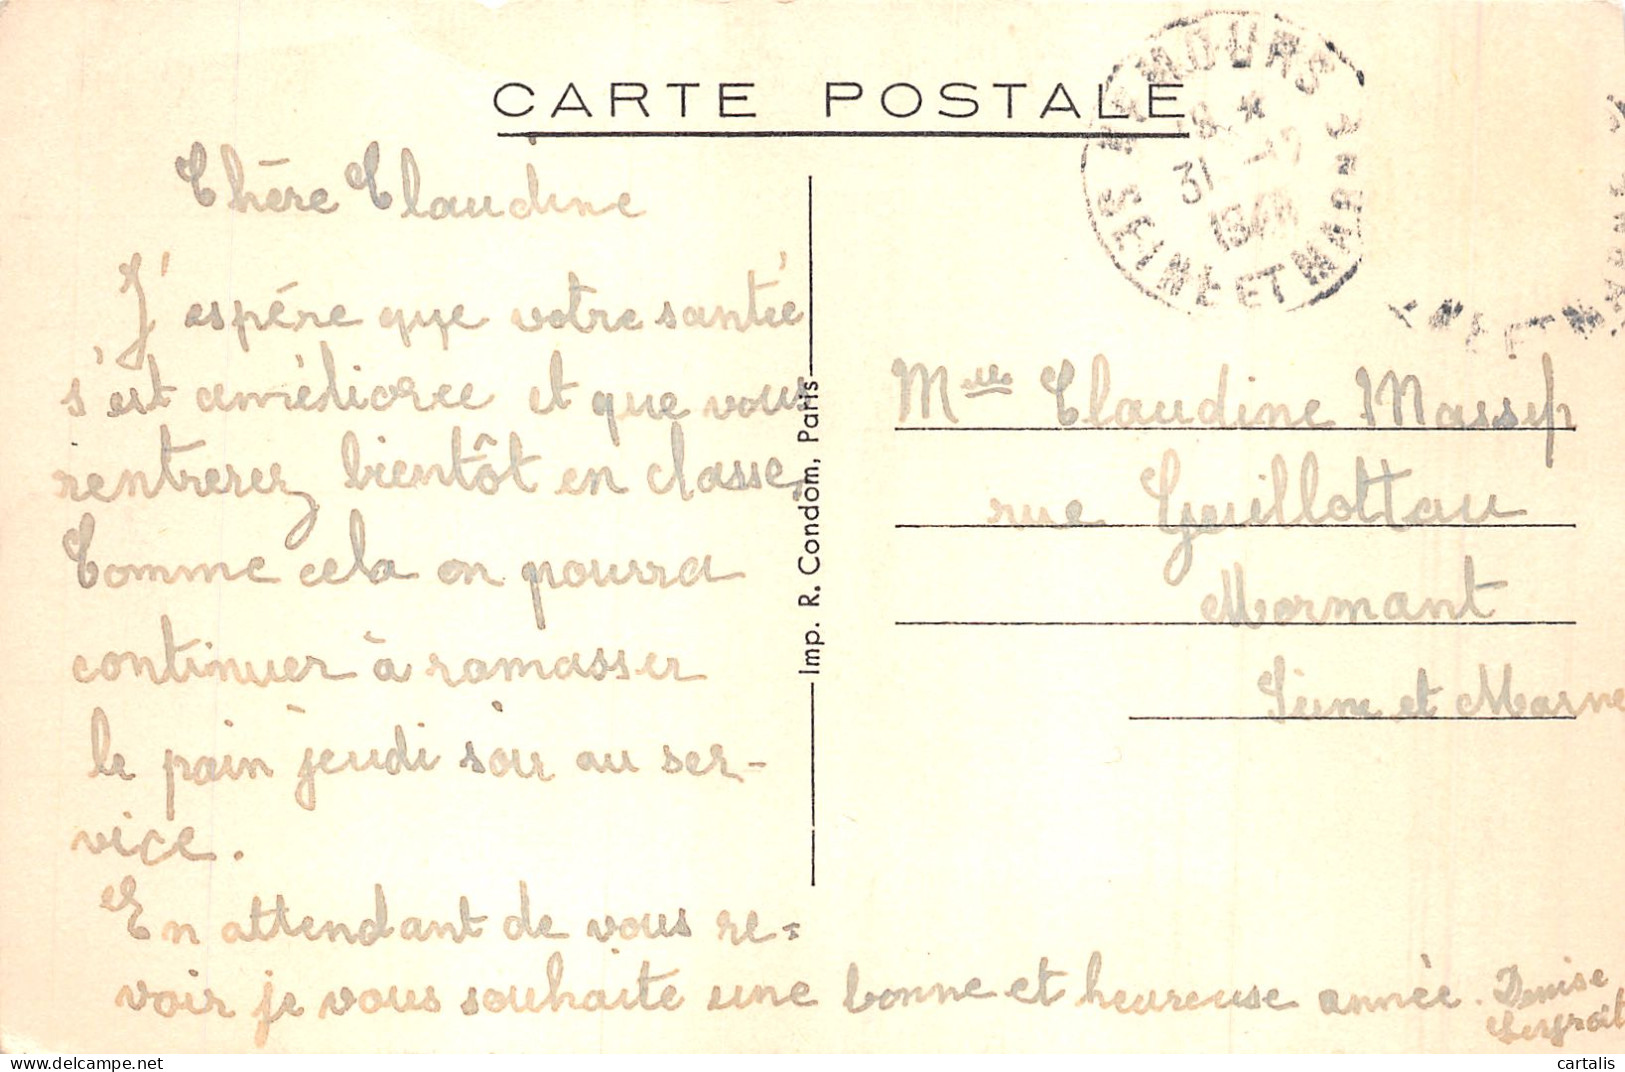 CARTE POSTALE
NEMOURS
18 *
31 -12
SEINE ET MARNE
Chère Claudine
J'espére que votre santée
s'est améliorée et que vous
rentrerez bientôt en classe,
Comme cela on pourra
continuer à ramasser
le pain jeudi soir au ser-
vice.
En attendant de vous re=
voir je vous souhaite une bonne et heureuse année.
Denise
Imp. R. Condom, Paris
Mlle Claudine Massip
rue Guillottau
Mormant
Seine et Marne
cartalis